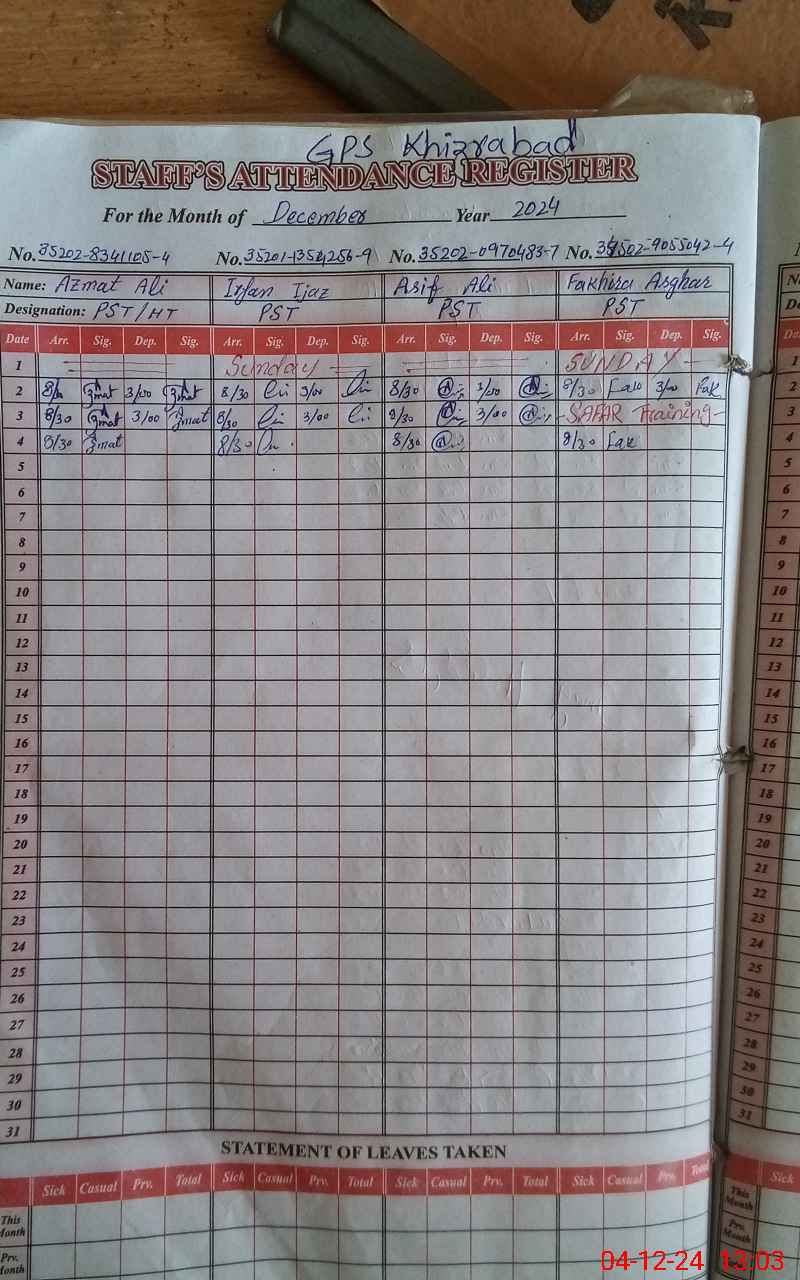 GPS Khizrabad
STAFF'S ATTENDANCE REGISTER
For the Month of December Year 2024
No. 35202-8341105-4 No. 35201-1354256-9 No. 35202-0970483-7 No. 34502-9055042-4
Name: Azmat Ali Irfan Ijaz Asif Ali Fakhira Asghar
Designation: PST/HT PST PST PST
Date Arr. Sig. Dep. Sig. Arr. Sig. Dep. Sig. Arr. Sig. Dep. Sig. Arr. Sig. Dep. Sig.
1 Sunday SUNDAY
2 3/00 8/30 3/00 8/30 3/00 8/30 Fak 3/00 Fak
3 8/30 Azmat 3/00 Azmat 8/30 3/00 8/30 3/00 SAFAR Training
4 8/30 Azmat 8/30 8/30 8/30 Fak
5
6
7
8
9
10
11
12
13
14
15
16
17
18
19
20
21
22
23
24
25
26
27
28
29
30
31
STATEMENT OF LEAVES TAKEN
Sick Casual Prv. Total Sick Casual Prv. Total Sick Casual Prv. Total Sick Casual Prv. Total
This Month
Prv. Month
04-12-24 13:03